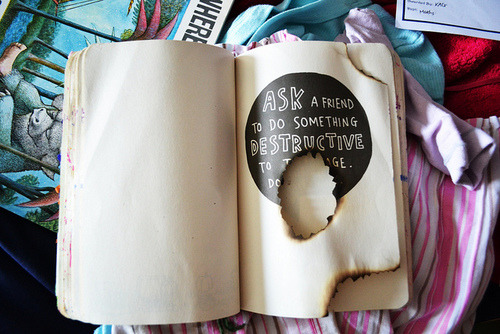 WHERE
ASK A FRIEND
TO DO SOMETHING
DESTRUCTIVE
TO T AGE.
DO